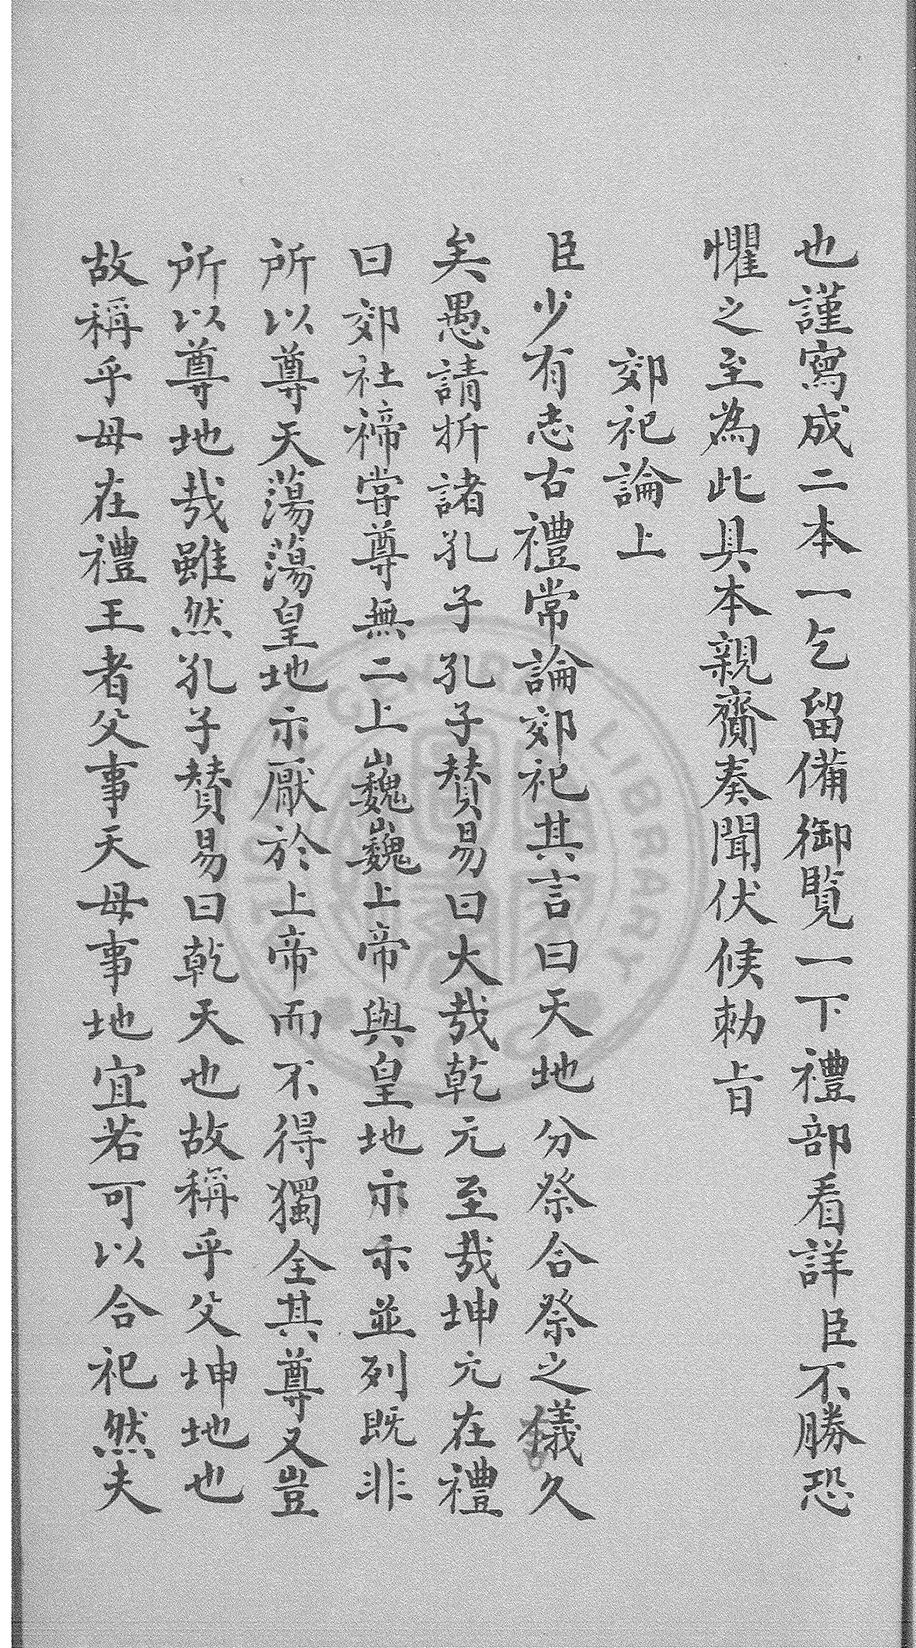 也謹寫成二本一乞留備御覽一下禮部看詳臣不勝恐
懼之至為此具本親齎奏聞伏候勅旨
郊祀論上
臣少有志古禮常論郊祀其言曰天地分祭合祭之儀久
矣愚請折諸孔子孔子贊易曰大哉乾元至哉坤元在禮
曰郊社禘嘗尊無二上巍巍上帝與皇地示示並列既非
所以尊天蕩蕩皇地示厭於上帝而不得獨全其尊又豈
所以尊地哉雖然孔子贊易曰乾天也故稱乎父坤地也
故稱乎母在禮王者父事天母事地宜若可以合祀然夫